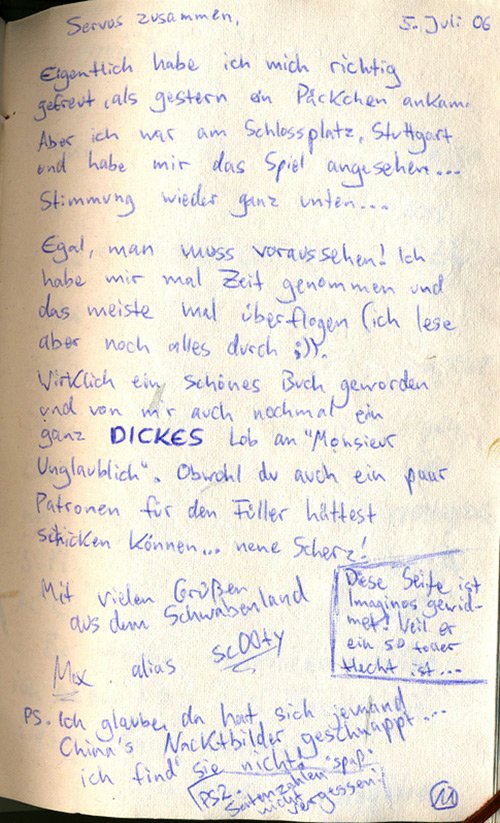 Servus zusammen,
5. Juli 06
Eigentlich habe ich mich richtig
gefreut, als gestern ein Päckchen ankam.
Aber ich war am Schlossplatz, Stuttgart
und habe mir das Spiel angesehen...
Stimmung wieder ganz unten...
Egal, man muss voraussehen! Ich
habe mir mal Zeit genommen und
das meiste mal überflogen (ich lese
aber noch alles durch ;)).
Wirklich ein schönes Buch geworden
und von mir auch nochmal ein
ganz DICKES Lob an "Monsieur
Unglaublich". Obwohl du auch ein paar
Patronen für den Füller hättest
schicken können... nene Scherz!
Mit vielen Grüßen
aus dem Schwabenland
Max alias scOOty
Diese Seite ist
Imaginos gewid-
met! Weil er
ein so toller
Hecht ist...
PS. Ich glaube, da hat sich jemand
China's Nacktbilder geschnappt...
ich find' sie nicht! *spaß*
PS2. Seitenzahlen
nicht
vergessen!
11